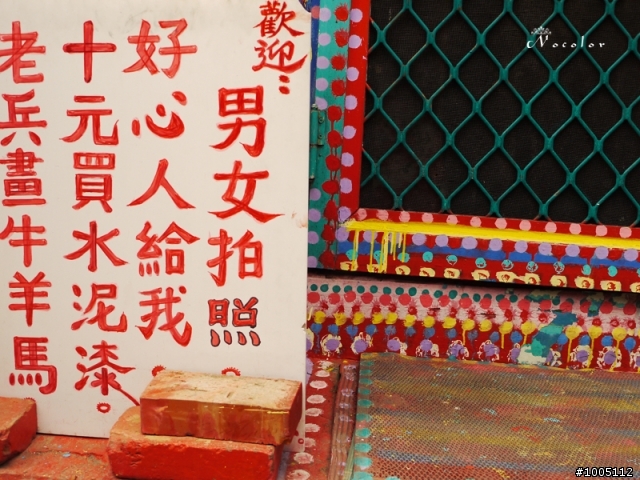 歡迎：
男女拍照
好心人給我
十元買水泥漆。
老兵畫牛羊馬
Nocolor
#1005112